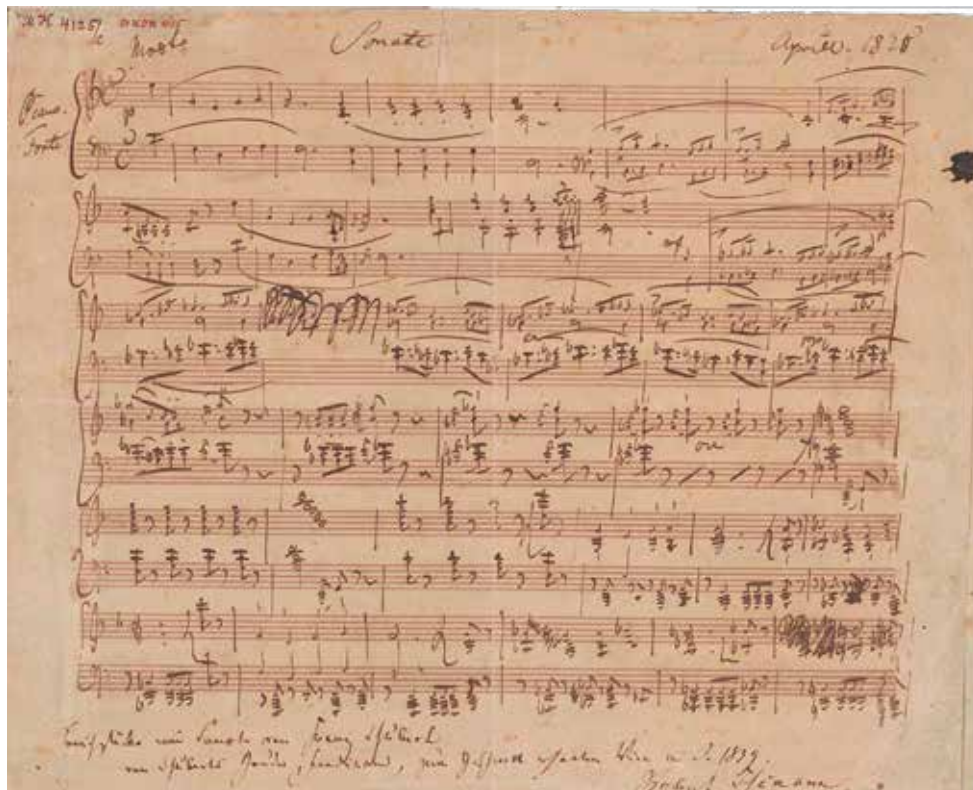 MH 4125/
c
Sonate
Aprill.
Piano-
Forte
mf
Sonate von Franz Schubert
von Schuberts Bruder, Ferdinand, zum Geschenk erhalten Wien 1839.
Robert Schumann